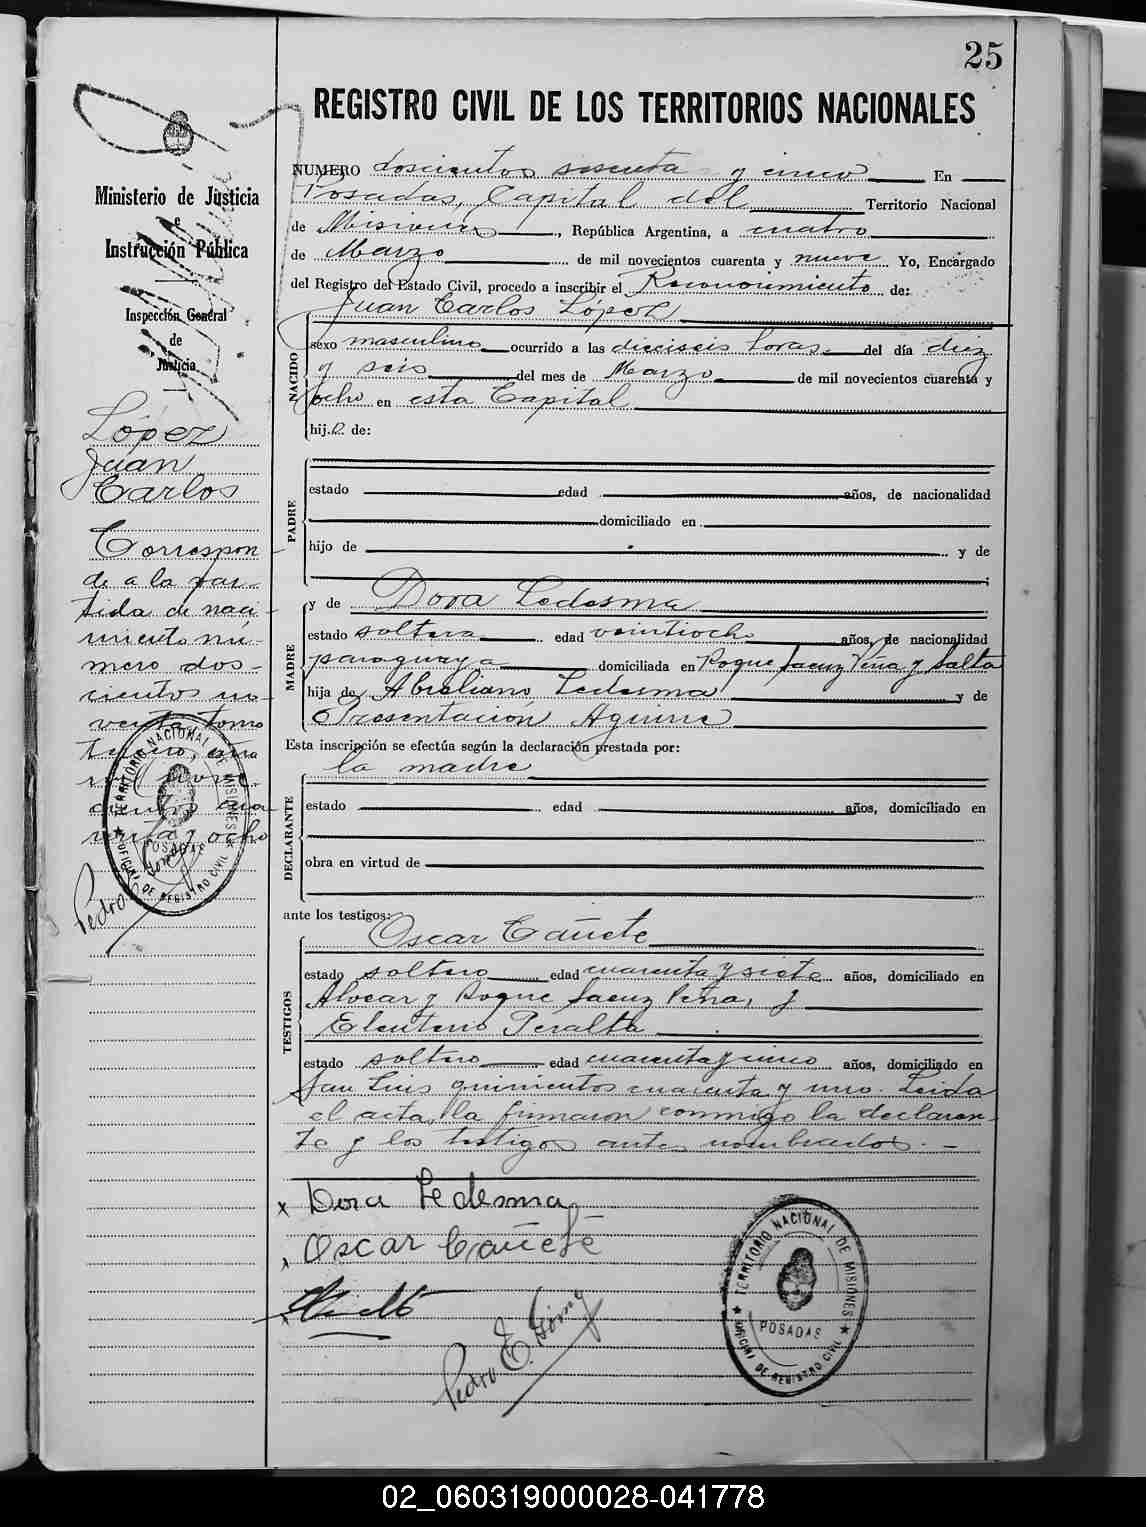 25
REGISTRO CIVIL DE LOS TERRITORIOS NACIONALES
Ministerio de Justicia
e
Instrucción Pública
Inspección General
de
Justicia
López
Juan
Carlos
Correspon
de a la par-
tida de naci
miento nú-
mero dos-
cientos no
venta tomo
tercero, año
mil nove
cientos cua
renta y ocho
TERRITORIO NACIONAL DE MISIONES
POSADAS
OFICINA DE REGISTRO CIVIL
Pedro E. Gómez
NUMERO doscientos sesenta y cinco En
Posadas, Capital del Territorio Nacional
de Misiones, República Argentina, a cuatro
de Marzo de mil novecientos cuarenta y nueve Yo, Encargado
del Registro del Estado Civil, procedo a inscribir el Reconocimiento de:
Juan Carlos López
NACIDO
sexo masculino ocurrido a las dieciseis horas del día diez
y seis del mes de Marzo de mil novecientos cuarenta y
ocho en esta Capital
hij.o de:
PADRE
estado edad años, de nacionalidad
domiciliado en
hijo de y de
MADRE
y de Dora Ledesma
estado soltera edad veintiocho años, de nacionalidad
paraguaya domiciliada en Roque Saenz Peña y Salta
hija de Ledesma y de
Presentación Aguirre
Esta inscripción se efectúa según la declaración prestada por:
la madre
DECLARANTE
estado edad años, domiciliado en
obra en virtud de
ante los testigos:
Oscar Cañete
TESTIGOS
estado soltero edad cuarenta y siete años, domiciliado en
Alvear y Roque Saenz Peña, y
Eleuterio Peralta
estado soltero edad cuarenta y cinco años, domiciliado en
San Luis quinientos cuarenta y uno. Leida
el acta, la firmaron conmigo la declaran-
te y los testigos antes nombrados.-
x Dora Ledesma
x Oscar Cañete
Pedro E. Gómez
TERRITORIO NACIONAL DE MISIONES
POSADAS
OFICINA DE REGISTRO CIVIL
02_060319000028-041778